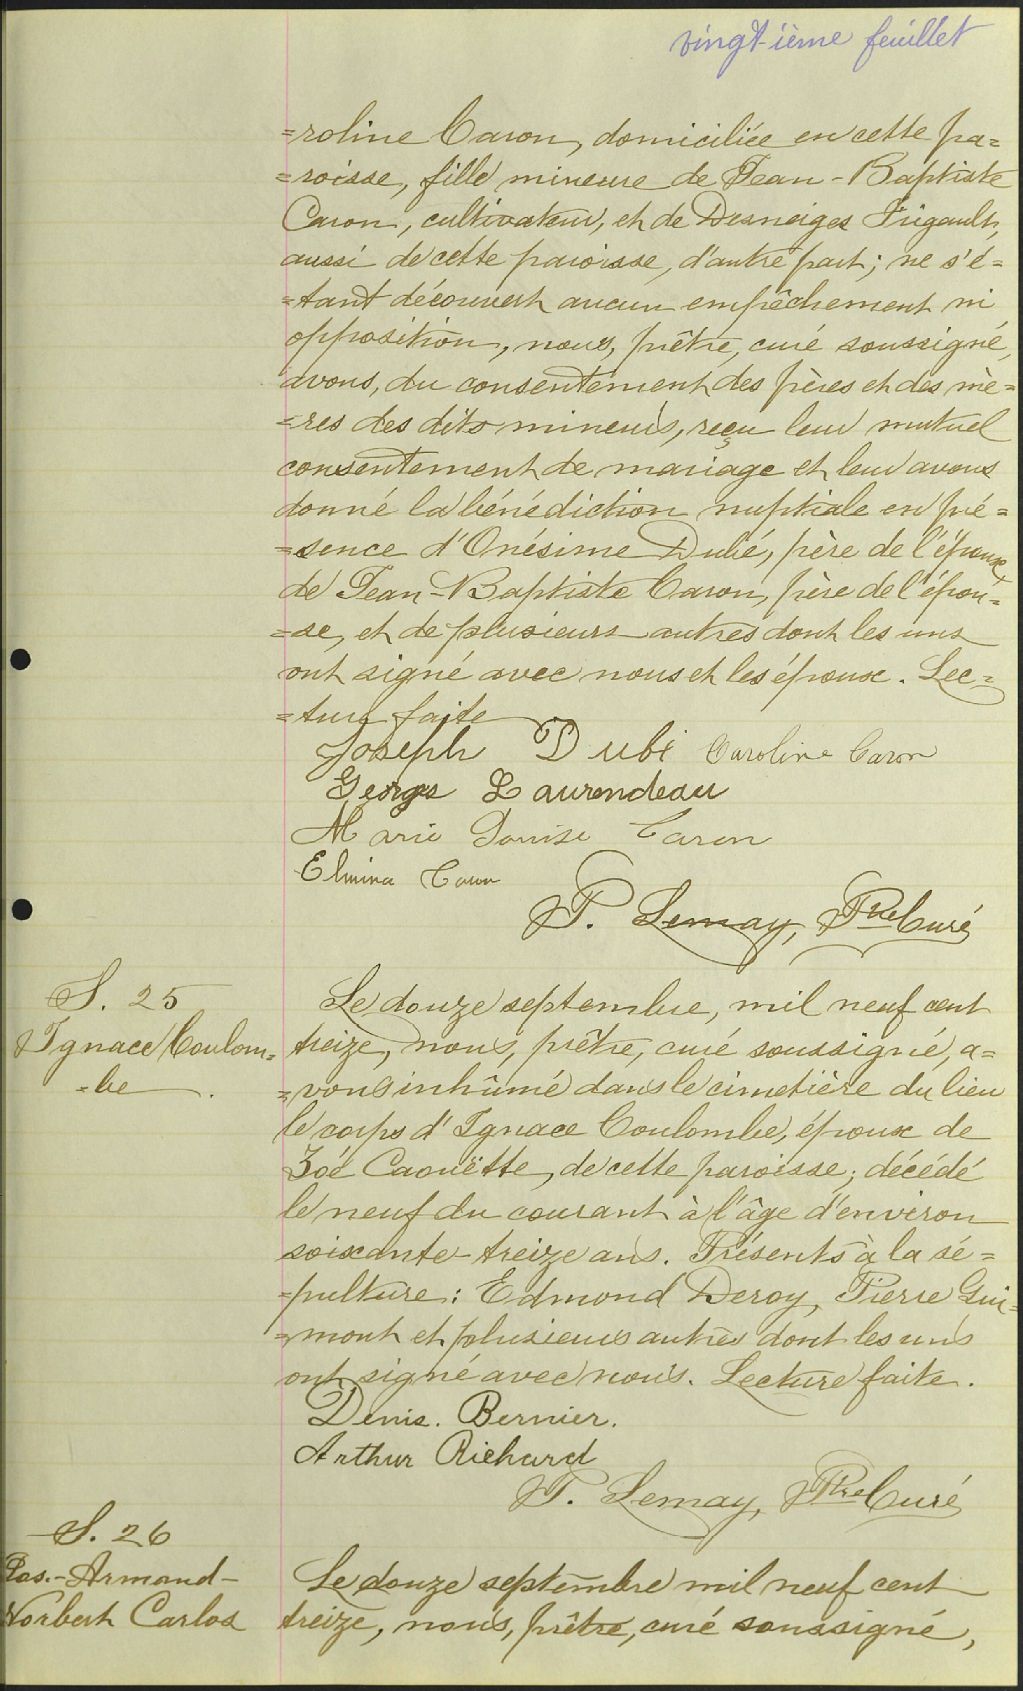 vingtième feuillet
=roline Caron, domiciliée en cette pa=
=roisse, fille mineure de Jean-Baptiste
Caron, cultivateur, et de Desneiges Frigault,
aussi de cette paroisse, d'autre part; ne s'é=
=tant découvert aucun empêchement ni
opposition, nous, prêtre, curé soussigné,
avons, du consentement des pères et des mè=
=res des dits mineurs, reçu leur mutuel
consentement de mariage et leur avons
donné la bénédiction nuptiale en pré=
=sence d'Onésime Dubé, père de l'époux,
de Jean-Baptiste Caron, père de l'épou=
=se, et de plusieurs autres dont les uns
ont signé avec nous et les époux. Lec=
=ture faite
Joseph Dubé Caroline Caron
Georges Laurendeau
Marie Louise Caron
Elmina Caron
P. Lemay, Ptre Curé
S. 25
Ignace Coulom=
=be
Le douze septembre, mil neuf cent
treize, nous, prêtre, curé soussigné, a=
=vons inhûmé dans le cimetière du lieu
le corps d'Ignace Coulombe, époux de
Zoé Caouëtte, de cette paroisse, décédé
le neuf du courant à l'âge d'environ
soixante-treize ans. Présents à la sé=
=pulture: Edmond Deroy, Pierre Gui=
=mont et plusieurs autres dont les uns
ont signé avec nous. Lecture faite.
Denis. Bernier.
Arthur Richard
P. Lemay, Ptre Curé
S. 26
Jos.-Armand-
Norbert Carlos
Le douze septembre mil neuf cent
treize, nous, prêtre, curé soussigné,